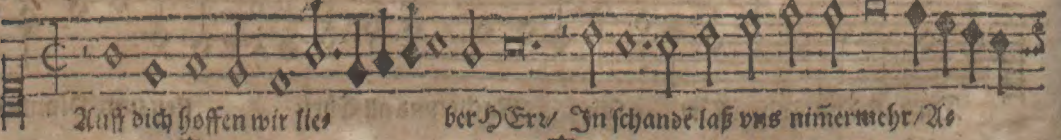 Auff dich hoffen wir lie⸗ ber HErꝛ/ In schandē laß vns nim̄ermehr/ A⸗